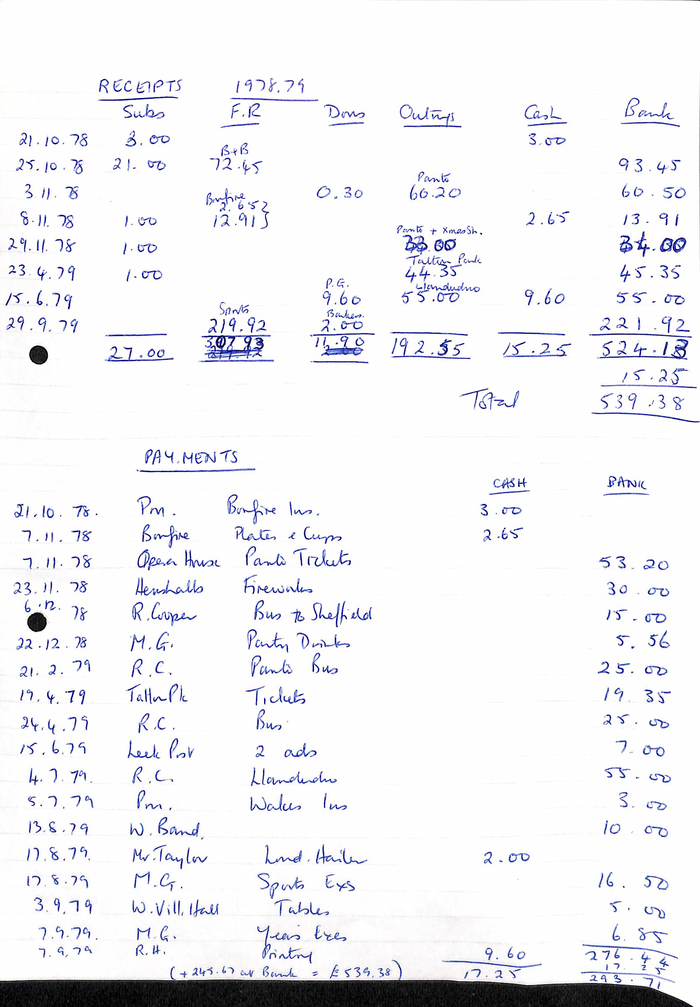 RECEIPTS 1978.79
Subs F.R Dons Outings Cash Bank
21.10.78 3.00 3.00
B+B
25.10.78 21.00 72.45 93.45
Panto
3.11.78 0.30 60.20 60.50
Bonfire
2.65}
8.11.78 1.00 12.91} 2.65 13.91
Panto + Xmas Sh.
29.11.78 1.00 33.00 34.00
Tatton Park
23.4.79 1.00 44.35 45.35
P.G. Llandudno
15.6.79 9.60 55.00 9.60 55.00
Sports Bankers
29.9.79 219.92 2.00 221.92
27.00 307.93 11.90 192.55 15.25 524.13
15.25
Total 539.38
PAYMENTS
CASH BANK
21.10.78. Pm. Bonfire Ins. 3.00
7.11.78 Bonfire Plates & Cups 2.65
7.11.78 Opera House Panto Tickets 53.20
23.11.78 Henshalls Fireworks 30.00
6.12.78 R. Cooper Bus to Sheffield 15.00
22.12.78 M.G. Party Drinks 5.56
21.2.79 R.C. Panto Bus 25.00
19.4.79 Tatton Pk Tickets 19.35
24.4.79 R.C. Bus 25.00
15.6.79 Leek Post 2 ads 7.00
4.7.79. R.C. Llandudno 55.00
5.7.79 Pm. Wakes Ins 3.00
13.8.79 W. Band. 10.00
17.8.79. Mr. Taylor Loud. Hailer 2.00
17.8.79 M.G. Sports Exs 16.50
3.9.79 W. Vill. Hall Tables 5.00
7.9.79. M.G. Years Exes 6.85
7.9.79 R.H. Printing 9.60 276.44
(+245.67 at Bank = £539.38) 17.25 17.25
293.71